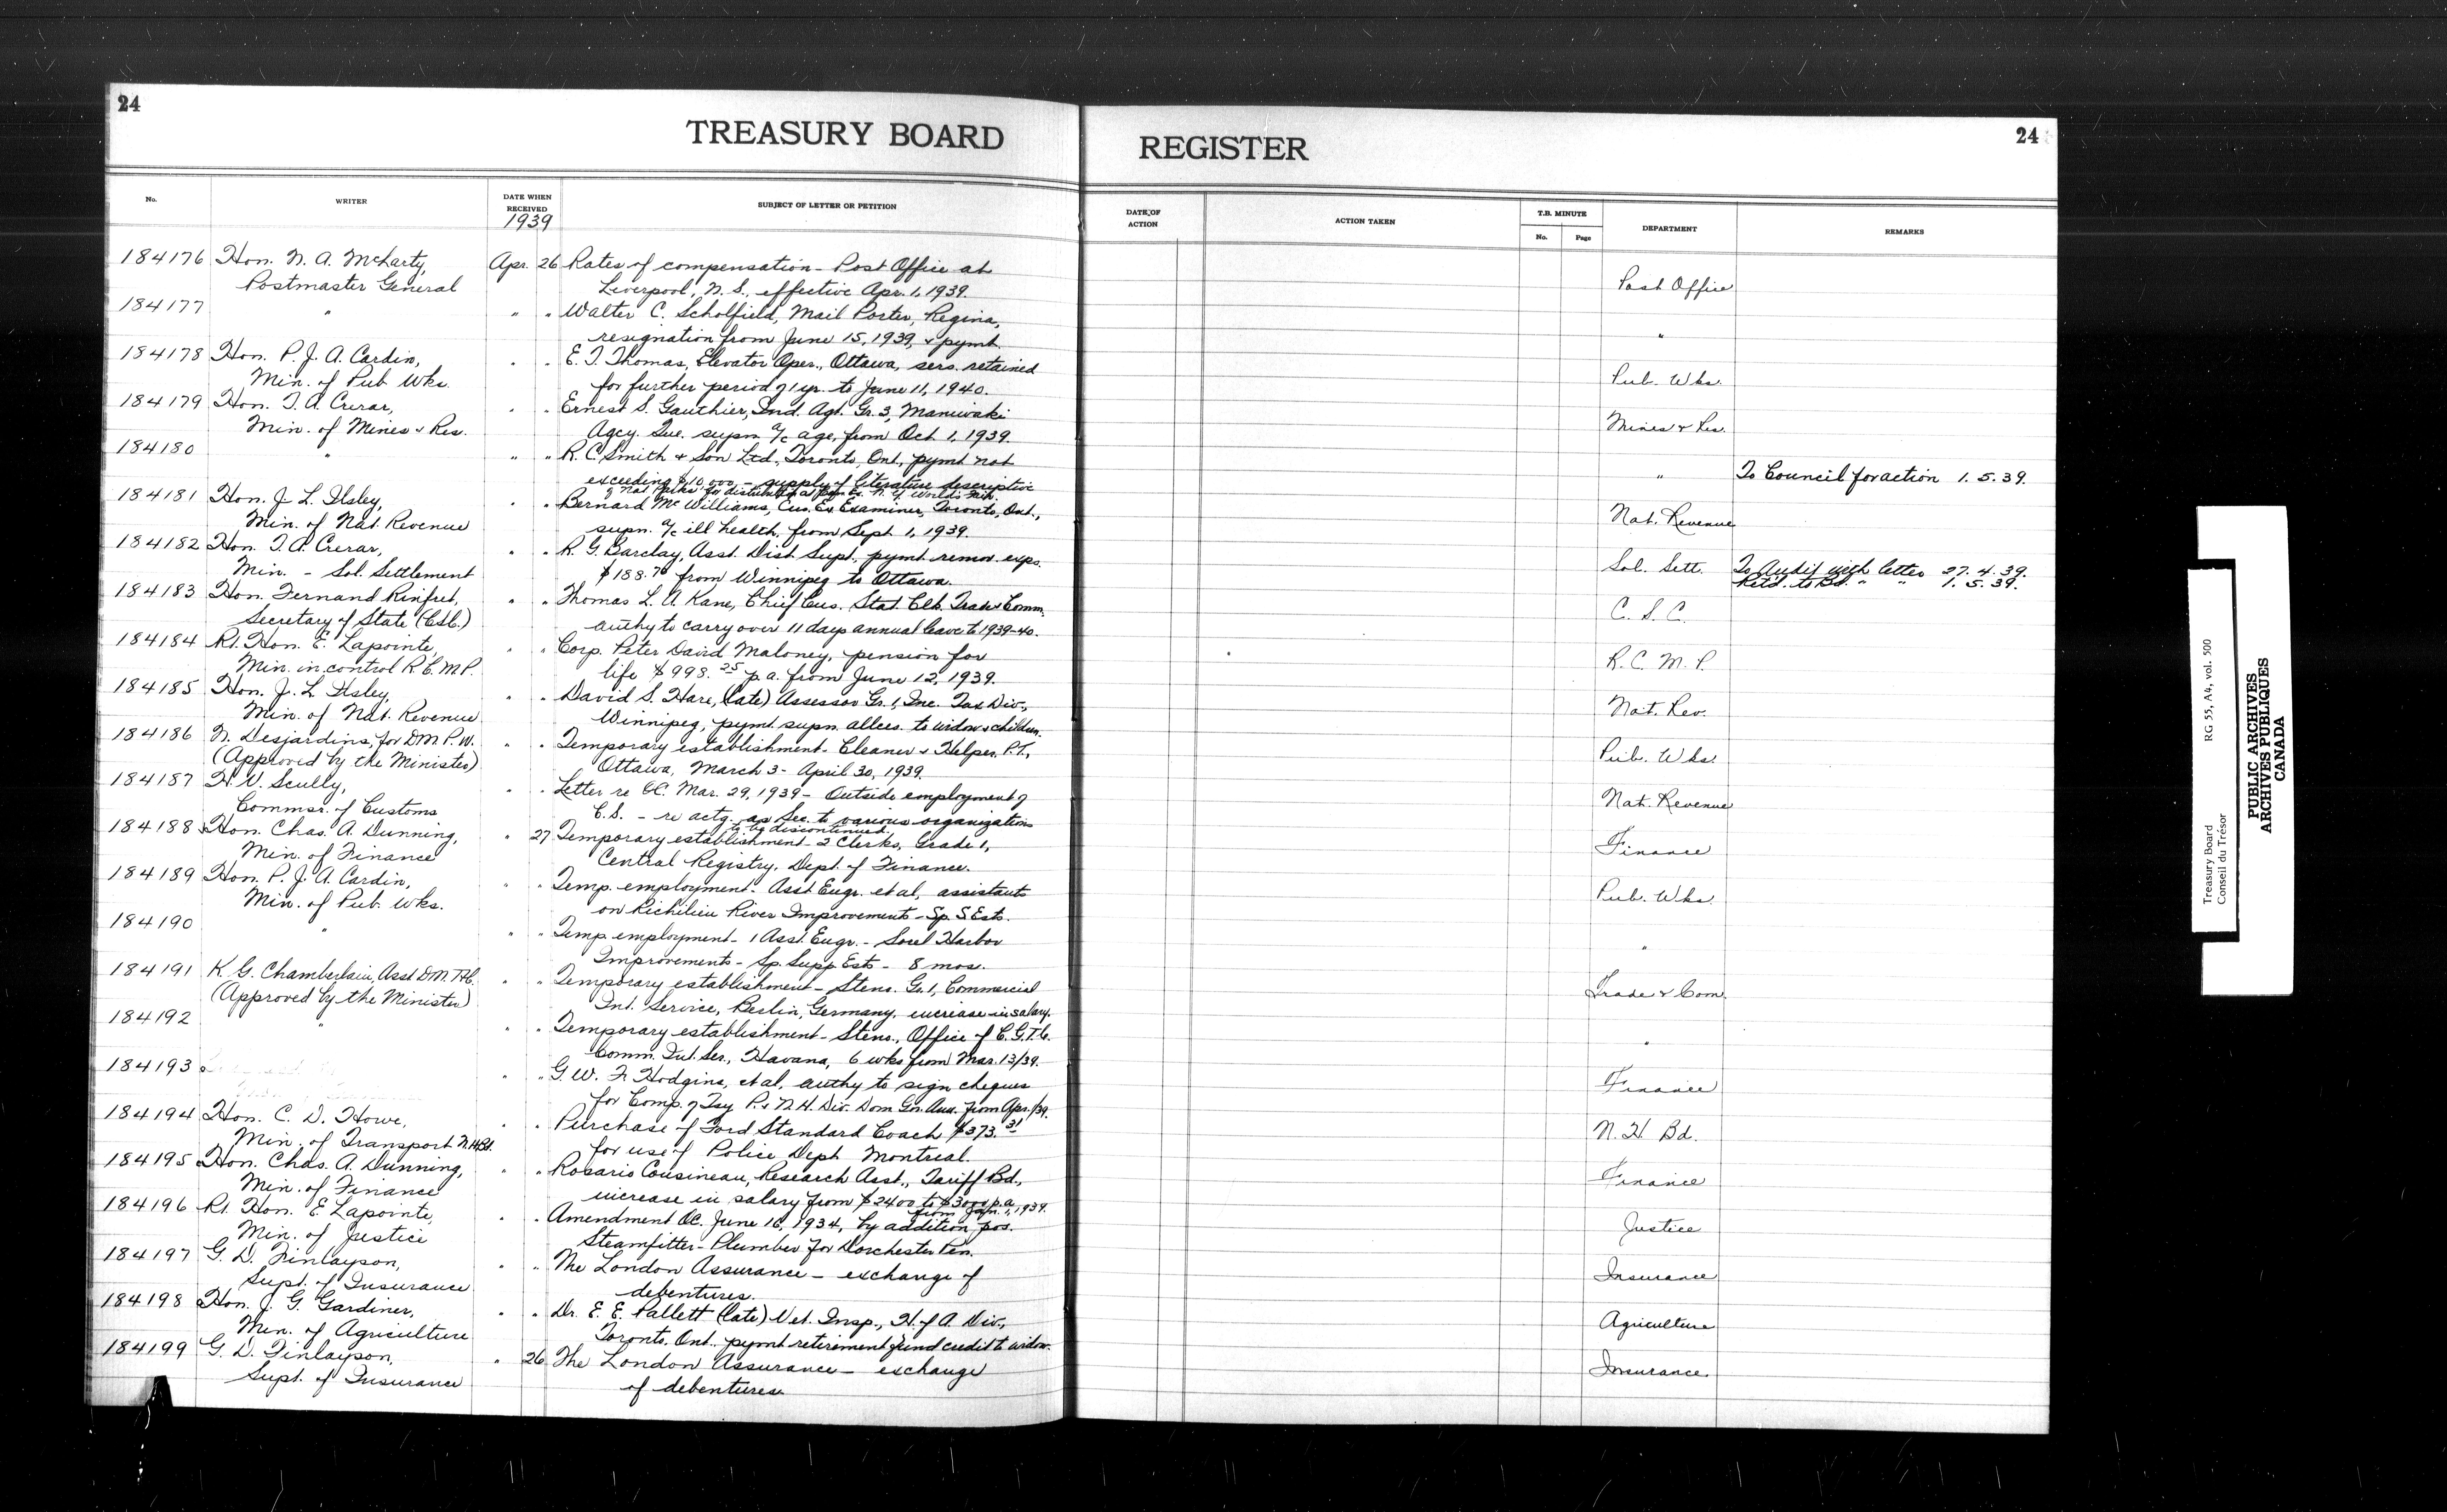 24
TREASURY BOARD
REGISTER
24
No.
WRITER
DATE WHEN RECEIVED
1939
SUBJECT OF LETTER OR PETITION
DATE OF ACTION
ACTION TAKEN
T.B. MINUTE
No.
Page
DEPARTMENT
REMARKS
184176 Hon. N. A. McLarty, Apr. 26 Rates of compensation - Post Office at
Postmaster General Liverpool, N. S., effective Apr. 1, 1939. Post Office
184177 " " " Walter C. Scholfield, Mail Porter, Regina,
resignation from June 15, 1939, & pymt. "
184178 Hon. P. J. A. Cardin, " " E. T. Thomas, Elevator Oper., Ottawa, sers. retained
Min. of Pub. Wks. for further period of 1 yr. to June 11, 1940. Pub. Wks.
184179 Hon. T. A. Crerar, " " Ernest S. Gauthier, Ind. Agt. Gr. 3, Maniwaki
Min. of Mines & Res. Agcy. Que. supn. a/c age, from Oct. 1, 1939. Mines & Res.
184180 " " " R. C. Smith & Son Ltd., Toronto, Ont., pymt not
exceeding $10,000 - supply of literature descriptive " To Council for action 1. 5. 39.
of Nat. Parks for distribution N. Y. World's Fair.
184181 Hon. J. L. Ilsley, " " Bernard McWilliams, Cus. Ex. Examiner, Toronto, Ont.,
Min. of Nat. Revenue supn. a/c ill health, from Sept 1, 1939. Nat. Revenue
184182 Hon. T. A. Crerar, " " R. G. Barclay, Asst. Dist. Supt. pymt. remov. exps.
Min. - Sol. Settlement $188.70 from Winnipeg to Ottawa. Sol. Sett. To Audit with letter 27. 4. 39.
Retd. to Bd. " " 1. 5. 39.
184183 Hon. Fernand Rinfret, " " Thomas L. A. Kane, Chief Cus. Stat. Clk. Trade & Comm.
Secretary of State (CSC.) authy to carry over 11 days annual leave to 1939-40. C. S. C.
184184 Rt. Hon. E. Lapointe, " " Corp. Peter David Maloney, pension for
Min. in control R.C.M.P. life $998.25 p.a. from June 12, 1939. R. C. M. P.
184185 Hon. J. L. Ilsley, " " David S. Hare, (late) Assessor Gr. 1, Inc. Tax Div.,
Min. of Nat. Revenue Winnipeg, pymt. supn. allces. to widow & children. Nat. Rev.
184186 N. Desjardins, for DM P.W. " " Temporary establishment - Cleaner & Helper, P.T.,
(Approved by the Minister) Ottawa, March 3 - April 30, 1939. Pub. Wks.
184187 H. D. Scully, " " Letter re OC. Mar. 29, 1939 - Outside employment of
Commsr. of Customs C.S. - re actg. as Sec. to various organizations Nat. Revenue
to be discontinued.
184188 Hon. Chas. A. Dunning, " 27 Temporary establishment - 2 Clerks, Grade 1,
Min. of Finance Central Registry, Dept. of Finance. Finance
184189 Hon. P. J. A. Cardin, " " Temp. employment - Asst Engr. et al, assistants
Min. of Pub. Wks. on Richilieu River Improvements - Sp. S. Ests. Pub. Wks.
184190 " " " Temp. employment - 1 Asst. Engr. - Sorel Harbor
Improvements - Sp. Supp Ests - 8 mos. "
184191 K. G. Chamberlain, Asst DM. T&C. " " Temporary establishment - Steno. Gr. 1, Commercial
(Approved by the Minister) Int. Service, Berlin, Germany, increase in salary. Trade & Com.
184192 " " " Temporary establishment - Steno., Office of C.G.T.C.
Comm. Int. Ser., Havana, 6 wks from Mar. 13/39. "
184193 " " G. W. F. Hodgins, et al, authy to sign cheques
for Comp. of Tsy P. & N.H. Div. Dom Gov. Anns. from Apr. 1/39. Finance
184194 Hon. C. D. Howe, " " Purchase of Ford Standard Coach $373.31
Min. of Transport N.H.Bd. for use of Police Dept Montreal. N. H. Bd.
184195 Hon. Chas. A. Dunning, " " Rosario Cousineau, Research Asst., Tariff Bd.,
Min. of Finance increase in salary from $2400 to $3000 p.a. Finance
from 1, 1939.
184196 Rt. Hon. E. Lapointe, " " Amendment OC. June 16, 1934, by addition pos.
Min. of Justice Steamfitter-Plumber for Dorchester Pen. Justice
184197 G. D. Finlayson, " " The London Assurance - exchange of
Supt. of Insurance debentures. Insurance
184198 Hon. J. G. Gardiner, " " Dr. E. E. Pallett (late) Vet. Insp., H. of A. Div.,
Min. of Agriculture Toronto, Ont. pymt retirement fund credit to widow. Agriculture
184199 G. D. Finlayson, " 26 The London Assurance - exchange
Supt. of Insurance of debentures. Insurance
Treasury Board RG 55, A4, vol. 500
Conseil du Trésor
PUBLIC ARCHIVES
ARCHIVES PUBLIQUES
CANADA